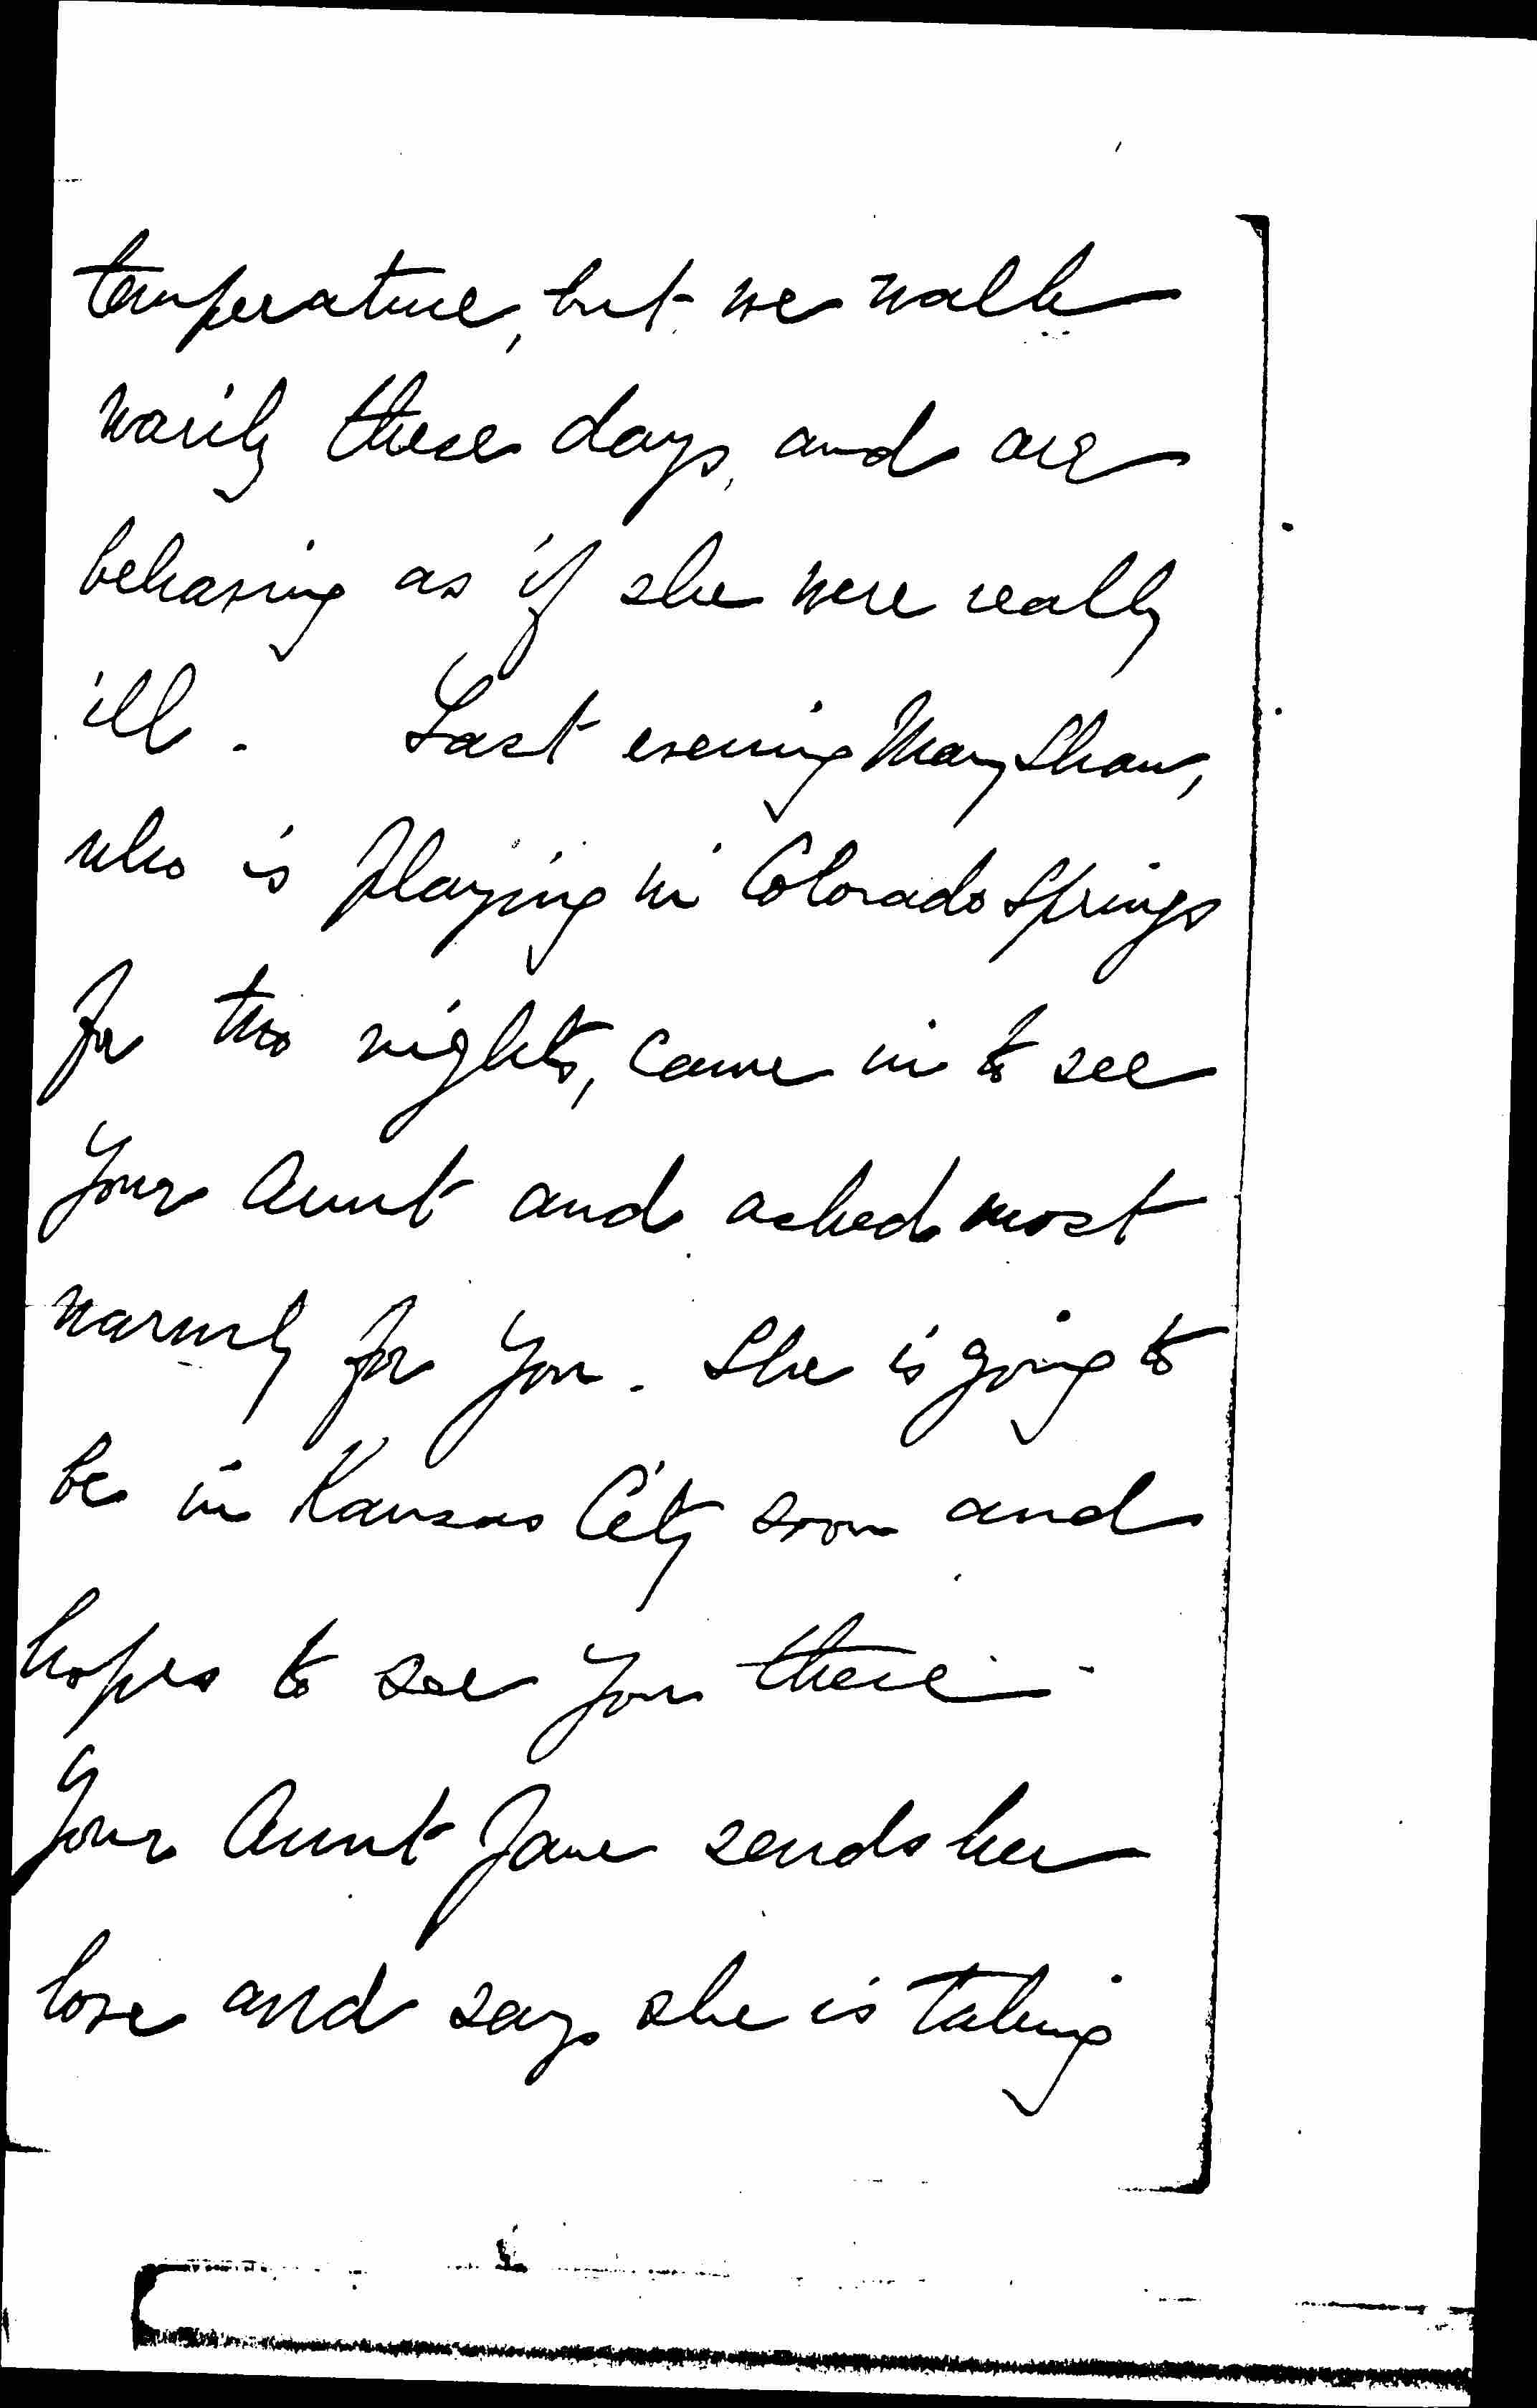 temperature, but we walk
warily these days, and are
behaving as if she were really
ill. Last evening Mary Shaw,
who is playing in Colorado Springs
for two nights, came in to see
your Aunt and asked most
warmly for you. She is going to
be in Kansas City soon and
hopes to see you there.
Your Aunt Jane sends her
love and says she is taking